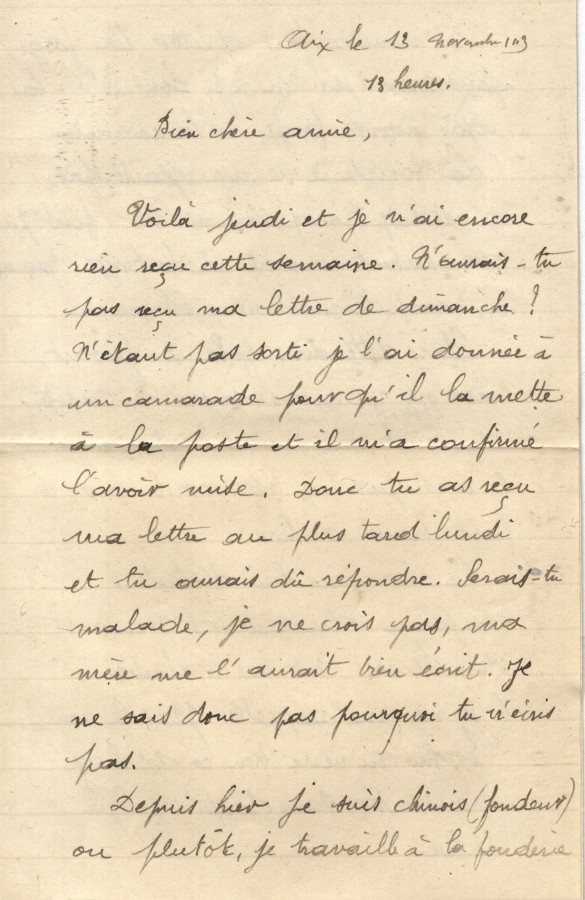 Aix le 13 novembre
13 heures.
Bien chère amie,
Voilà jeudi et je n'ai encore
rien reçu cette semaine. N'aurais-tu
pas reçu ma lettre de dimanche ?
N'étant pas sorti je l'ai donnée à
un camarade pour qu'il la mette
à la poste et il m'a confirmé
l'avoir mise. Donc tu as reçu
ma lettre au plus tard lundi
et tu aurais dû répondre. Serais-tu
malade, je ne crois pas, ma
mère me l'aurait bien écrit. Je
ne sais donc pas pourquoi tu n'écris
pas.
Depuis hier je suis chinois (fondeur)
ou plutôt, je travaille à la fonderie